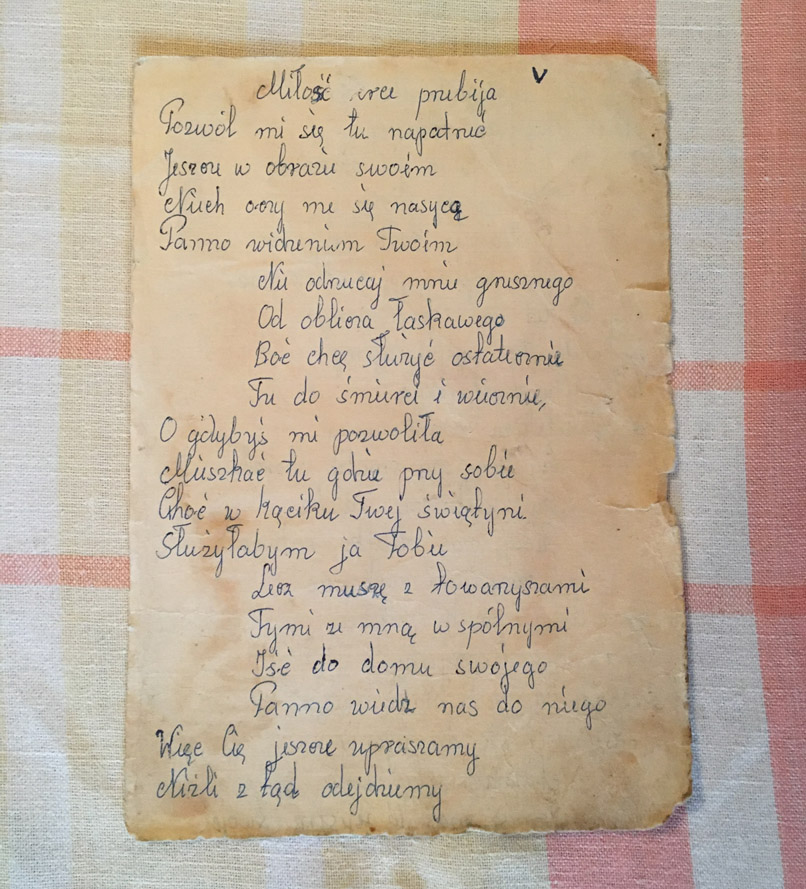 Miłość serce przebija V
Pozwól mi się tu napatrzeć
Jeszcze w obrazie swoim
Niech oczy me się nasycą
Panno widzeniem Twoim
Nie odrzucaj mnie grzesznego
Od oblicza łaskawego
Boć chcę służyć ostatecznie
Tu do śmierci i wiecznie,
O gdybyś mi pozwoliła
Mieszkać tu gdzie przy sobie
Choć w kąciku Twej świątyni.
Służyłabym ja Tobie
Lecz muszę z towarzyszami
Tymi ze mną w spólnymi
Iść do domu swojego
Panno wiedz nas do niego
Więc Cię jeszcze upraszamy
Niźli z tąd odejdziemy